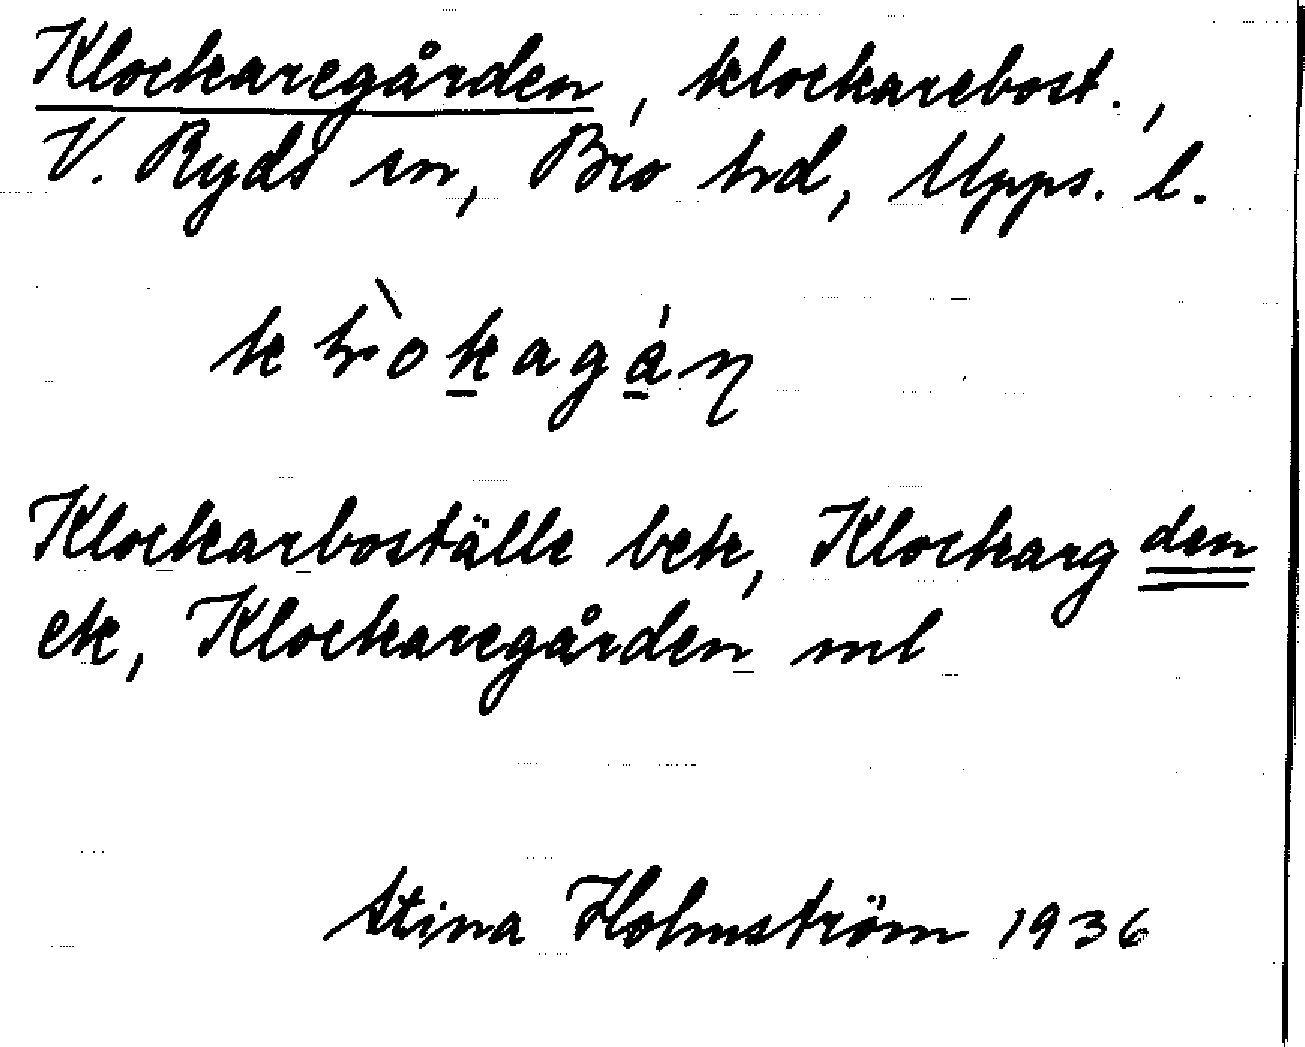 Klockaregården, klockarebost.,
V. Ryds sn, Bro hd, Upps. l.
Klockarboställe bek, Klockarg den
ek, Klockaregården ml
Stina Holmström 1936